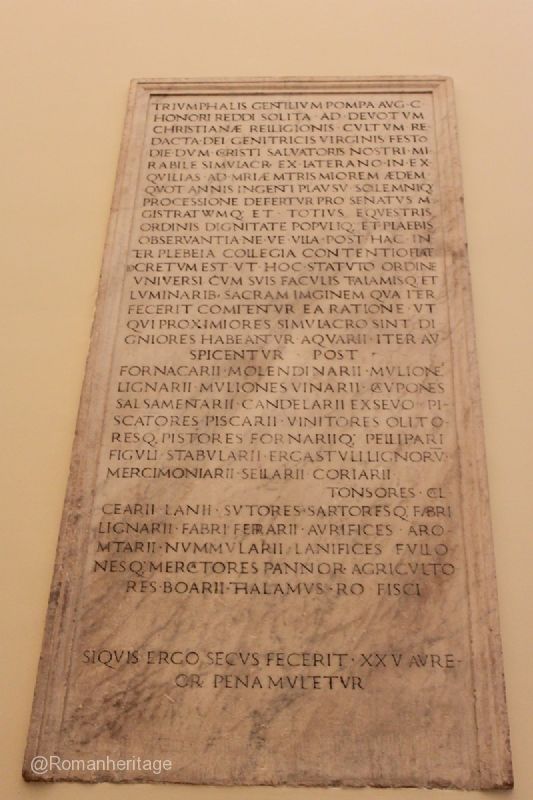 TRIVMPHALIS GENTILIVM POMPA AVG C
HONORI REDDI SOLITA · AD · DEVOTVM
CHRISTIANÆ RELIGIONIS · CVLTVM RE
DACTA · DEI GENITRICIS VIRGINIS FESTO
DIE DVM CRISTI SALVATORIS NOSTRI MI
RABILE SIMVLACR EX LATERANO IN EX
QVILIAS AD MRIÆ MTRIS MIOREM ÆDEM
QVOT ANNIS INGENTI PLAVSV SOLEMNIQ
PROCESSIONE DEFERTVR PRO SENATVS M
GISTRATVVMQ ET · TOTIVS EQVESTRIS
ORDINIS DIGNITATE POPVLIQ ET PLAEBIS
OBSERVANTIA NE VE VLLA POST HAC IN
TER PLEBEIA COLLEGIA CONTENTIO FIAT
DCRETVM EST VT HOC STATVTO ORDINE
VNIVERSI CVM SVIS FACVLIS TALAMISQ ET
LVMINARIB · SACRAM IMGINEM QVA ITER
FECERIT COMITENTVR EA RATIONE · VT
QVI PROXIMIORES SIMVLACRO SINT DI
GNIORES HABEANTVR AQVARII ITER AV
SPICENTVR · POST ·
FORNACARII · MOLENDINARII · MVLIONE
LIGNARII · MVLIONES VINARII · CVPONES
SALSAMENTARII · CANDELARII EX SEVO · PI-
SCATORES PISCARII · VINITORES OLITO
RES Q PISTORES FORNARIIQ PELLIPARI
FIGVLI · STABVLARII ERGASTVLI LIGNORV
MERCIMONIARII · SELLARII CORIARII
TONSORES · CL
CEARII LANII · SVTORES · SARTORESQ FABRI
LIGNARII · FABRI FERRARII · AVRIFICES · ARO-
MTARII · NVMMVLARII · LANIFICES FVLLO
NESQ MERCTORES PANNOR · AGRICVLTO
RES · BOARII · THALAMVS · RO FISCI
SIQVIS ERGO SECVS FECERIT · XXV AVRE-
OR PENA MVLETVR
@Romanheritage